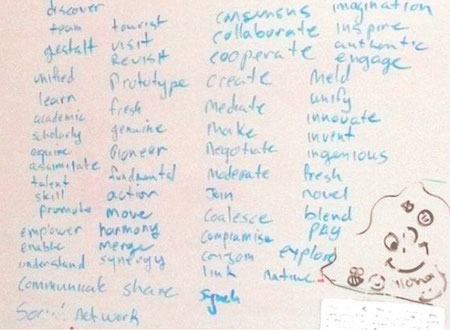 discover
team
gestalt
unified
learn
academic
scholarly
aquire
assimilate
talent
skill
promote
empower
enable
understand
communicate share
network
tourist
visit
Revisit
Prototype
fresh
genuine
Pioneer
fundamental
action
move
harmony
merge
synergy
consensus
collaborate
cooperate
create
Mediate
Make
Negotiate
Moderate
Join
Coalesce
Compramise
link
imagination
inspire
authentic
engage
Meld
unify
innovate
invent
ingenious
fresh
novel
blend
play
explore
Native